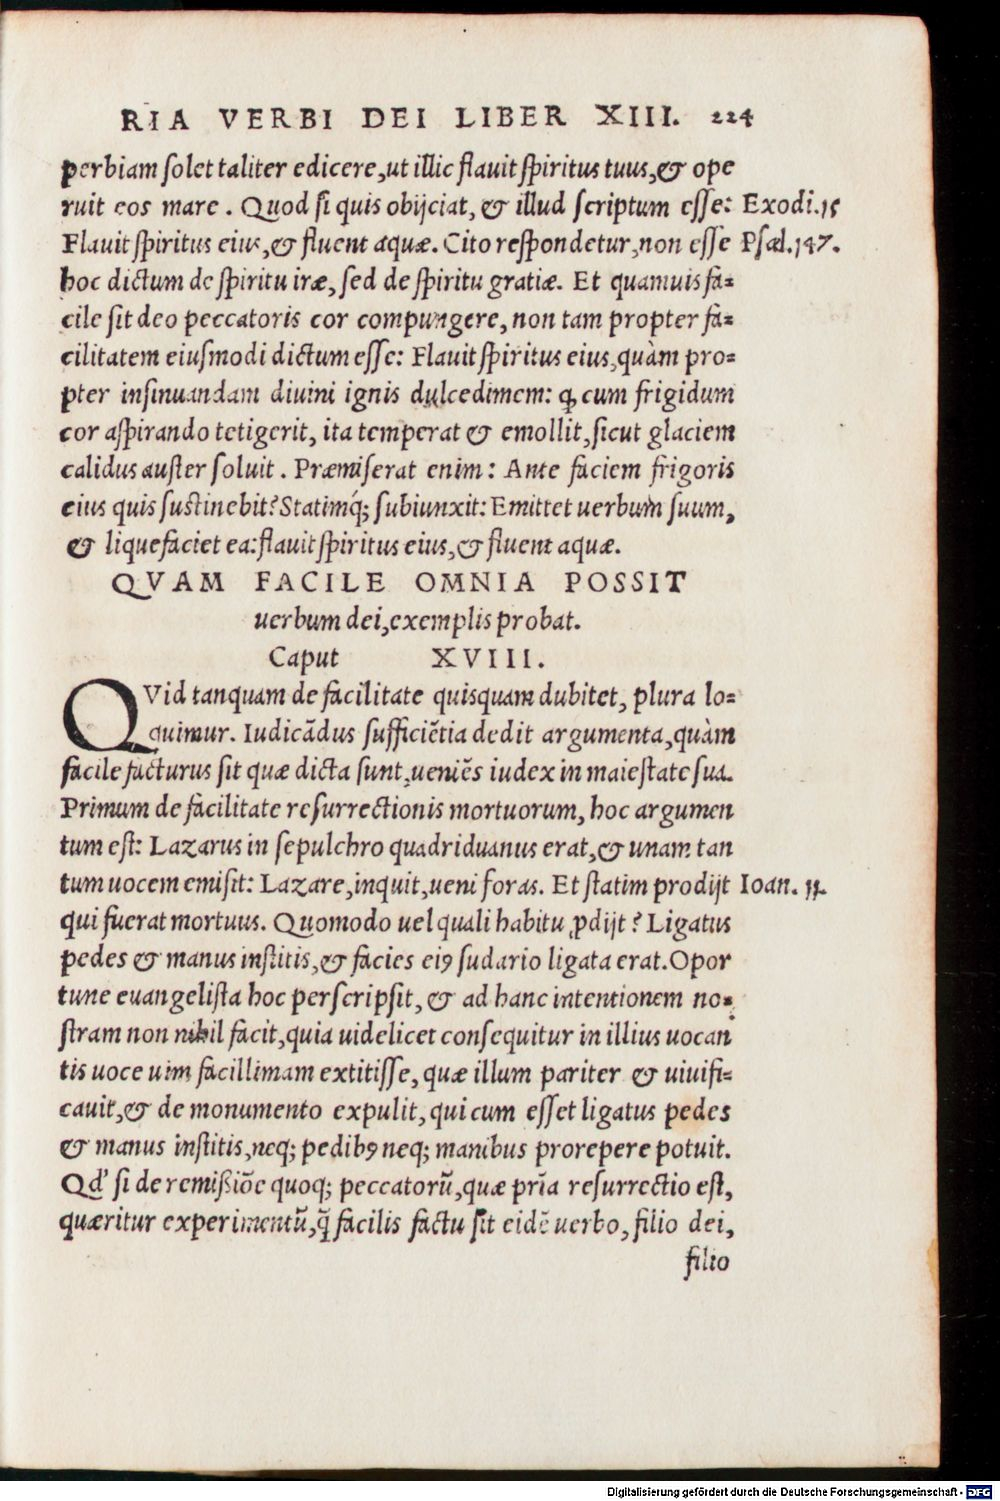 RIA VERBI DEI LIBER XIII. 224
perbiam solet taliter edicere, ut illic flauit spiritus tuus, & ope
ruit eos mare. Quod si quis obijciat, & illud scriptum esse: Exodi.15
Flauit spiritus eius, & fluent aquæ. Cito respondetur, non esse Psal.147.
hoc dictum de spiritu iræ, sed de spiritu gratiæ. Et quamuis fa=
cile sit deo peccatoris cor compungere, non tam propter fa=
cilitatem eiusmodi dictum esse: Flauit spiritus eius, quàm pro=
pter insinuandam diuini ignis dulcedimem: ꝙ cum frigidum
cor aspirando tetigerit, ita temperat & emollit, sicut glaciem
calidus auster soluit. Præmiserat enim: Ante faciem frigoris
eius quis sustinebit? Statimq́; subiunxit: Emittet uerbum suum,
& liquefaciet ea: flauit spiritus eius, & fluent aquæ.
QVAM FACILE OMNIA POSSIT
uerbum dei, exemplis probat.
Caput XVIII.
QVid tanquam de facilitate quisquam dubitet, plura lo=
quimur. Iudicãdus sufficiẽtia dedit argumenta, quàm
facile facturus sit quæ dicta sunt, ueniẽs iudex in maiestate sua.
Primum de facilitate resurrectionis mortuorum, hoc argumen
tum est: Lazarus in sepulchro quadriduanus erat, & unam tan
tum uocem emisit: Lazare, inquit, ueni foras. Et statim prodijt Ioan. 11.
qui fuerat mortuus. Quomodo uel quali habitu ꝓdijt? Ligatus
pedes & manus institis, & facies eiꝰ sudario ligata erat. Opor
tune euangelista hoc perscripsit, & ad hanc intentionem no=
stram non nihil facit, quia uidelicet consequitur in illius uocan
tis uoce uim facillimam extitisse, quæ illum pariter & uiuifi=
cauit, & de monumento expulit, qui cum esset ligatus pedes
& manus institis, neq; pedibꝰ neq; manibus prorepere potuit.
Qd' si de remißiõe quoq; peccatorũ, quæ prĩa resurrectio est,
quæritur experimentũ, q̃ facilis factu sit eidẽ uerbo, filio dei,
filio
Digitalisierung gefördert durch die Deutsche Forschungsgemeinschaft - DFG